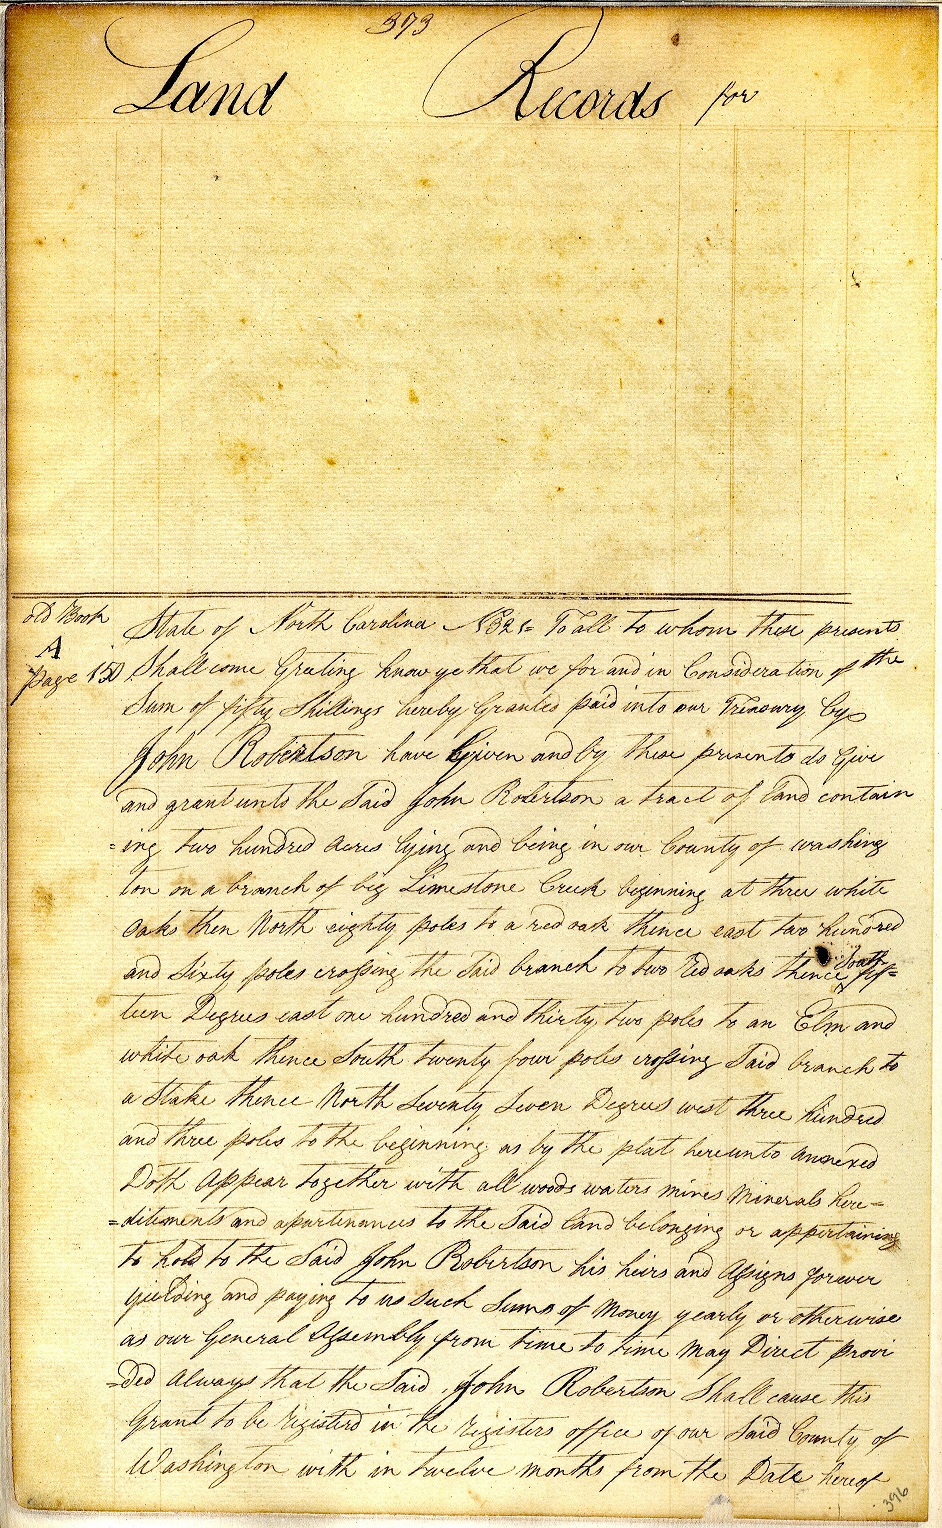 373
Land Records for
old Book
A
page 150
State of North Carolina No 321 = To all to whom these presents
Shall come Greeting know ye that we for and in Consideration of the
Sum of fifty Shillings hereby Granted paid into our Treasury by
John Robertson have Given and by these presents do Give
and grant unto the Said John Robertson a tract of land contain
=ing two hundred acres lying and being in our County of washing
ton on a branch of big Limestone Creek beginning at three white
oaks then North eighty poles to a red oak thence east two hundred
and Sixty poles crossing the Said branch to two red oaks thence South fif=
teen Degrees east one hundred and thirty two poles to an Elm and
white oak thence South twenty four poles crossing Said branch to
a Stake thence North Seventy Seven Degrees west three hundred
and three poles to the beginning as by the plat hereunto annexed
Doth Appear together with all woods waters mines Minerals here=
=ditements and apurtenances to the Said land belonging or appertaining
to hold to the Said John Robertson his heirs and Assigns forever
yielding and paying to us Such Sums of Money yearly or otherwise
as our General Assembly from time to time May Direct provi
=ded Always that the Said John Robertson Shall cause this
Grant to be registerd in the registers office of our Said County of
Washington with in twelve months from the Date hereof
396